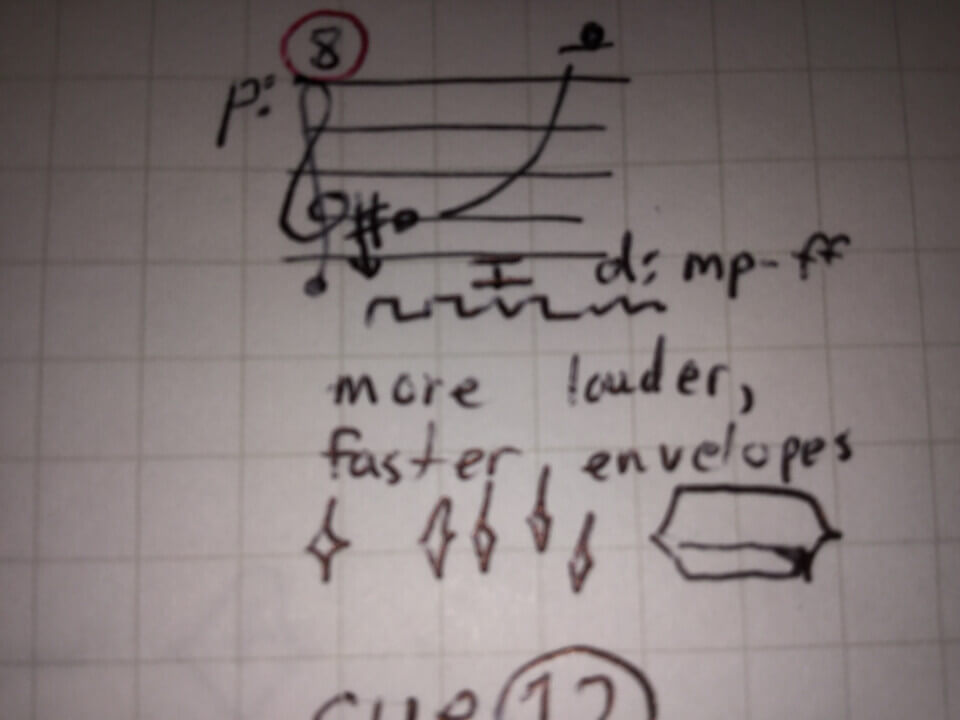 8
p:
d: mp-ff
more louder,
faster, envelopes
cue 12